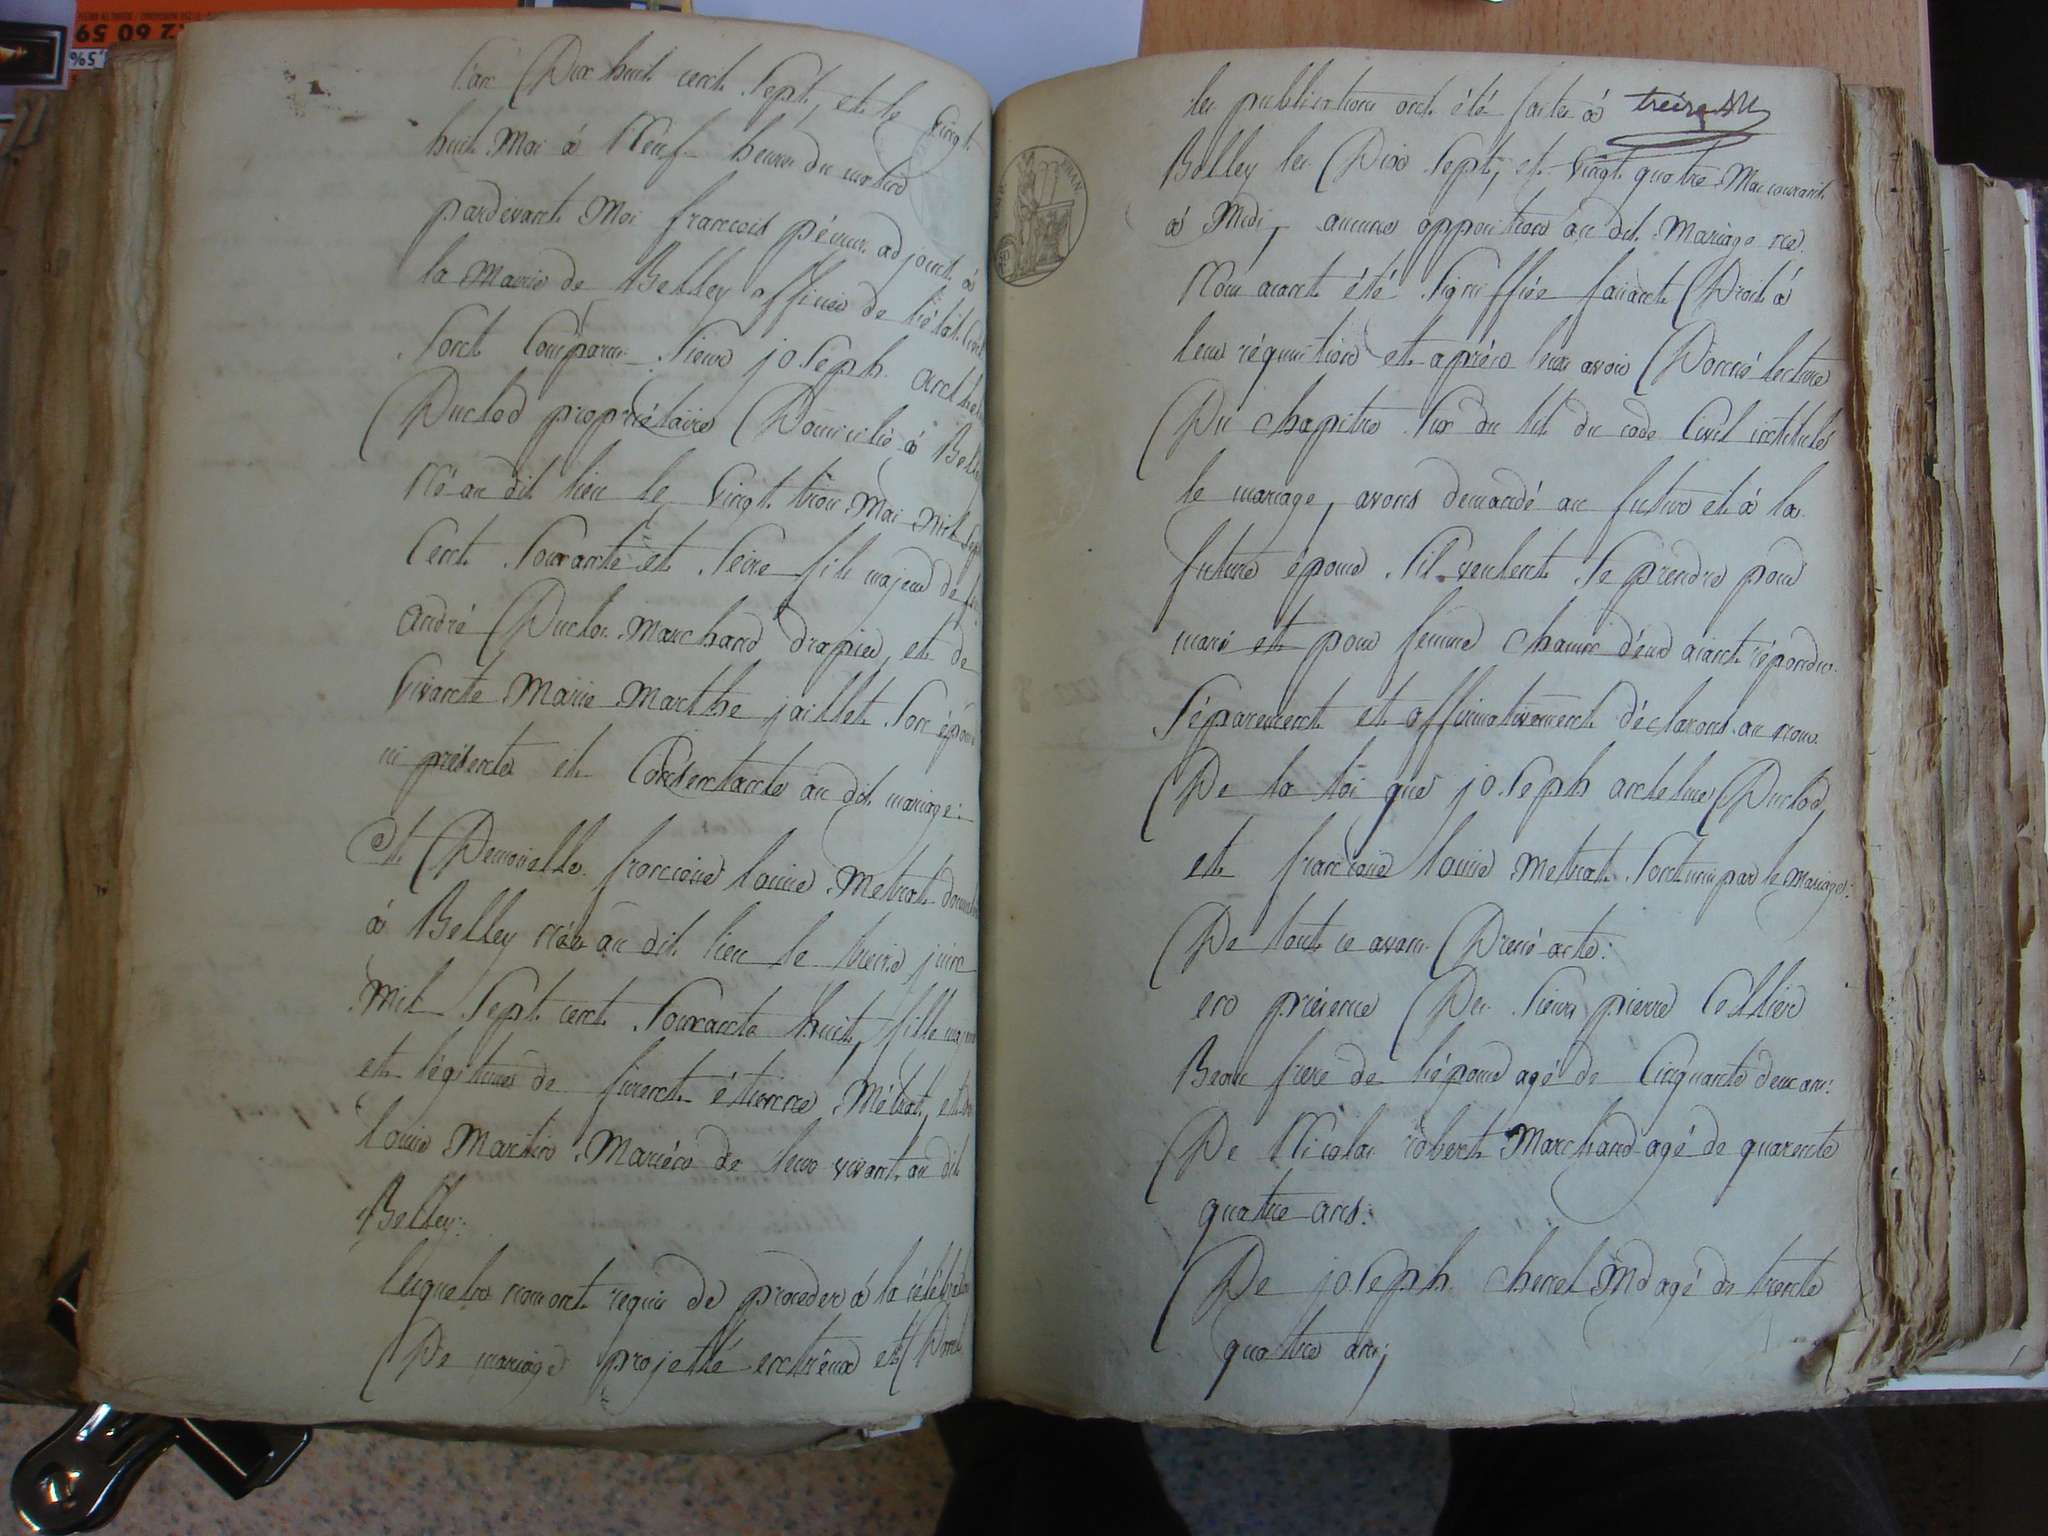 l'an Dix huit cent Sept, et le Vingt
huit Mai à Neuf heures du matin
pardevant Moi françois péneur adjoint à
la Mairie de Belley officier de l'état Civil
Sont Comparus Sieur joSeph antheline
Duclod propriétaire Domicilié à Belley
Né au dit lieu le Vingt trois Mai Mil Sept
Cent Soixante et Seize fils majeur de feu
andré Duclos Marchand drapier, et de
Vivante Marie Marthe jaillet Son épouse
ici présente et Consentante au dit mariage:
et Demoiselle françoise louise Metrat
à Belley née au dit lieu le treize juin
Mil Sept cent Soixante huit, fille majeure
et légitime de furent étienne Métrat, et de
louise Martin Mariés de leur vivant au dit
Belley:
lesquels nous ont requis de proceder à la célébration
De mariage projetté entr'eux et Dont
les publications ont été faites à treize
Belley les Dix Sept, et Vingt quatre Mai courant
à Midi, aucune opposition au dit Mariage ne
Nous aiant été Signiffiée faisant Droit à
leur réquisition et après leur avoir Donné lecture
Du chapitre Six du tit du code Civil intitulé
le mariage, avons demandé au futur et à la
future épouse S'il veulent Se prendre pour
mari et pour femme chacun d'eux aiant répondu
Séparement et affirmativement déclarons au nom
De la loi que joSeph antelme Duclod,
et françoise louise Metrat Sont unis par le Mariage:
De tout ce avons Dressé acte:
en présence Du Sieur pierre Cellier
Beau frere de l'épouse agé de Cinquante deux ans:
De Nicolas robert Marchand agé de quarente
quatre ans:
De joSeph chenel Md agé de trente
quatre ans;